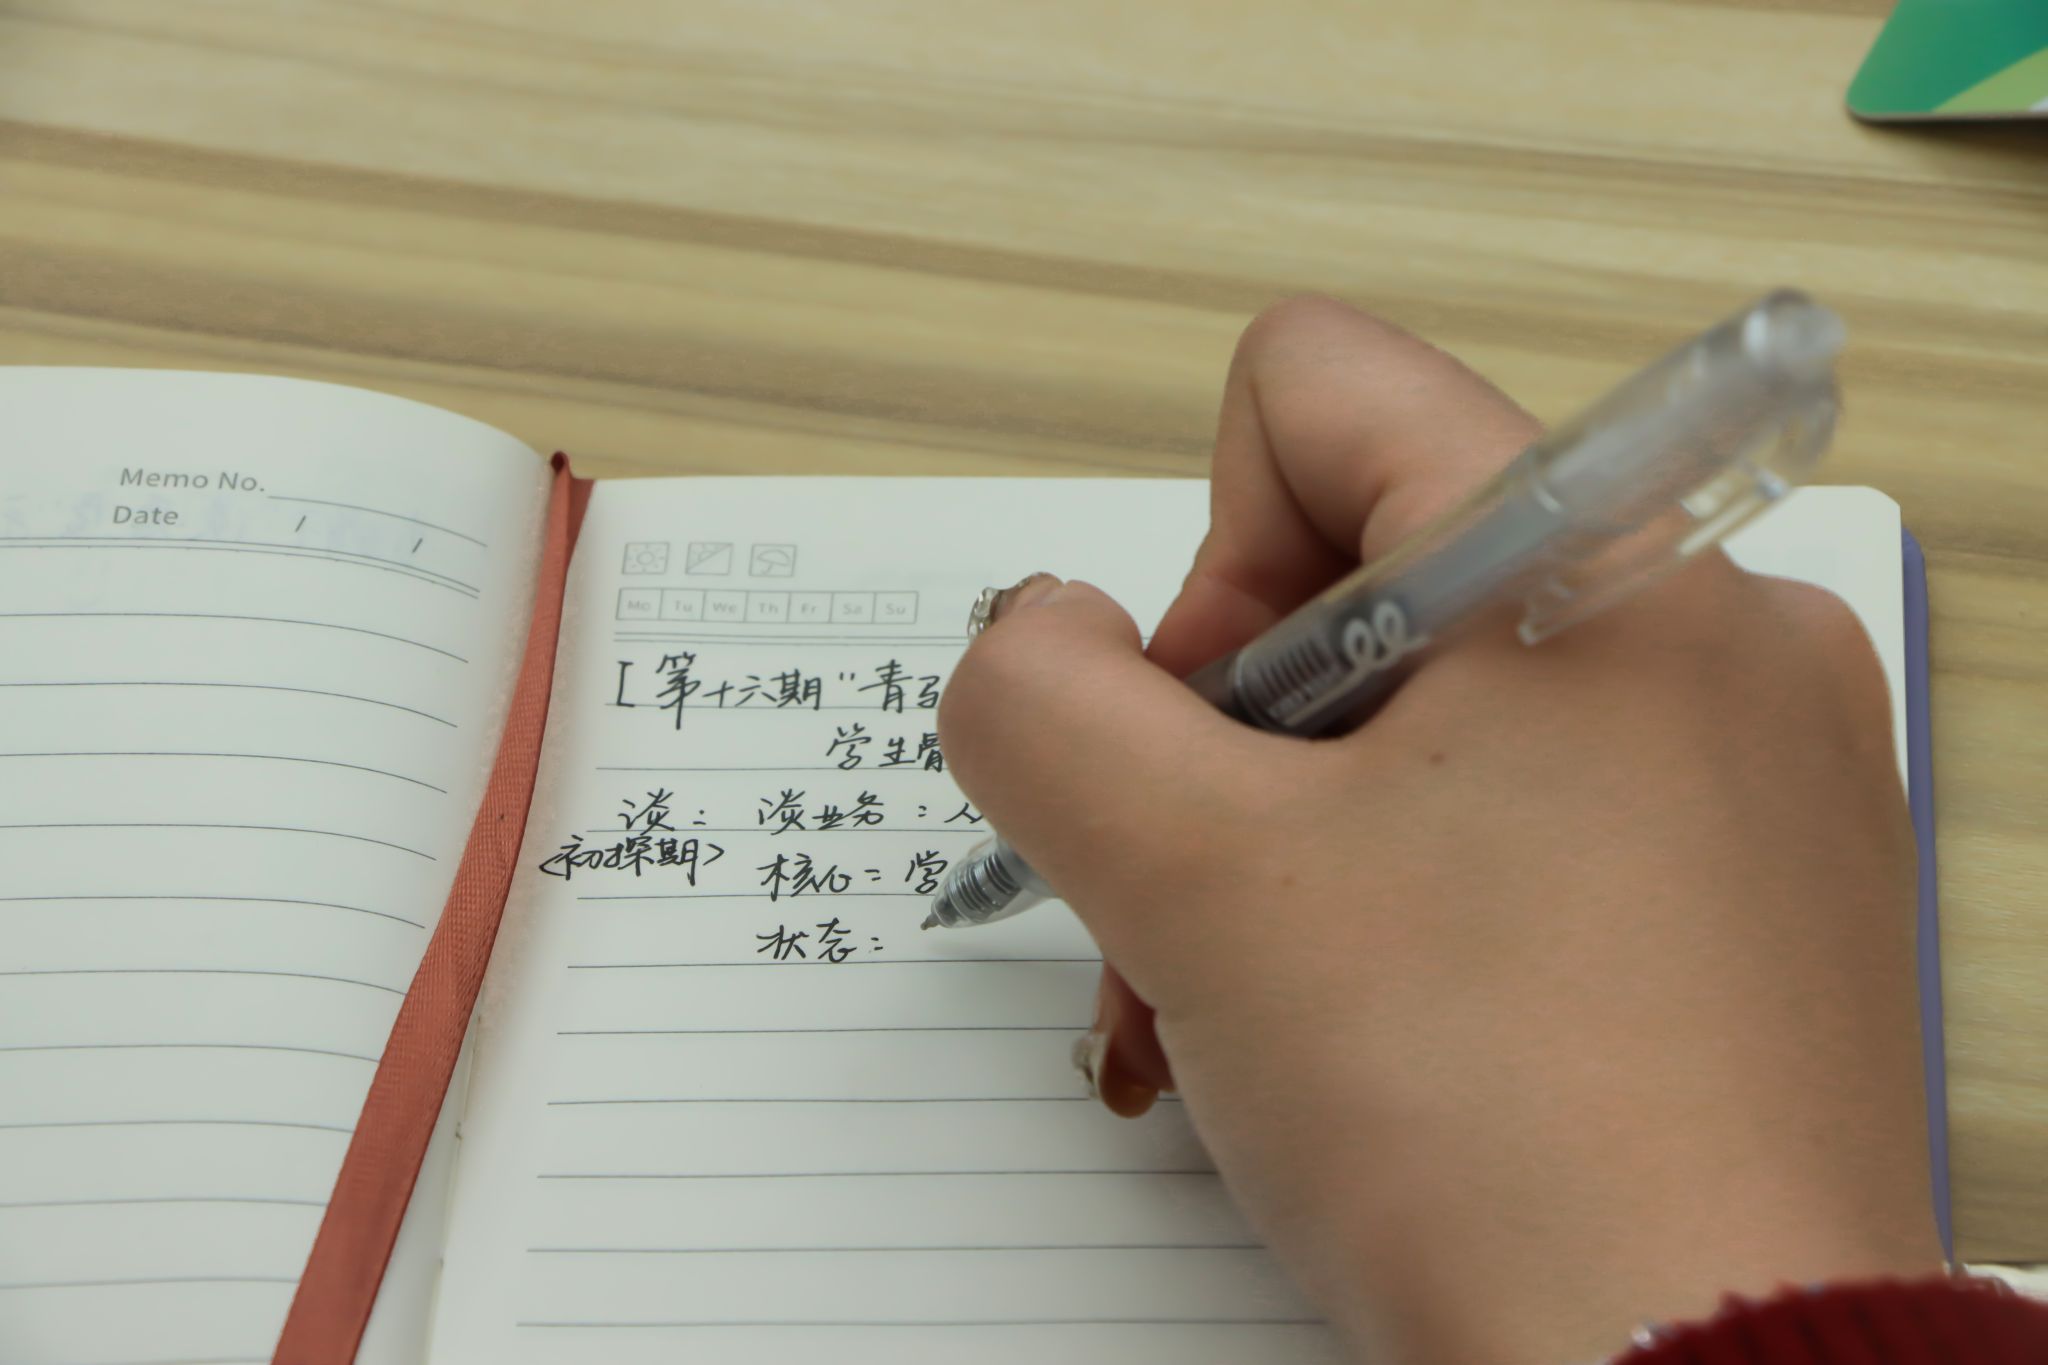 Memo No.
Date / /
Mo Tu We Th Fr Sa Su
[第十六期"青马
学生骨
谈: 谈业务:人
<初探期>
核心:学
状态: